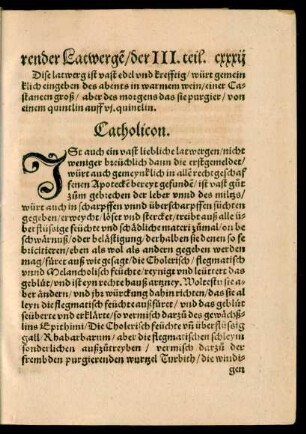 render Latwergē/der III. teil. cxxxij
Dise latwerg ist vast edel vnd krefftig/würt gemein
klich eingeben des abents in warmem wein/einer Ca-
stanien groß/aber des morgens das sie purgier/von
einem quintlin auff vj. quintlin.
Catholicon.
ISt auch ein vast liebliche latwergen/nicht
weniger breüchlich dann die erstgemeldet/
würt auch gemeynklich in allē recht geschaf
fenen Apotecke bereyt gefundē/ist vast gůt
zům gebrechen der leber vnnd des miltz/
würt auch in scharpffen vnnd überscharpffen süchten
gegeben/erweycht/löset vnd stercket/treibt auß alle ü-
berflüssige feüchte vnd schädliche materi zůmal/on be
schwärnuß/oder belästigung/derhalben sie denen so fe
bicitieren/eben als wol als andern gegeben werden
mag/füret auß wie gesagt/die Cholerisch/flegmatisch
vnnd Melancholisch feüchte/reynigt vnd leütrert das
geblüt/vnd ist eyn rechte hauß artzney. Woltestu sie a-
ber ändern/vnd jhr würckung dahin richten/das sie al
leyn die flegmatisch feüchte außfüret/vnd das geblüt
seüberte vnd erklärte/so vermisch darzů des gewächß-
lins Epithimi/Die Cholerisch feüchte vñ überflüssig
gall/Rhabarbarum/aber die flegmatischen schleym
sonderlichen außzůtreyben/vermisch darzů der
frembden purgierenden wurtzel Turbith/die windi-
gen